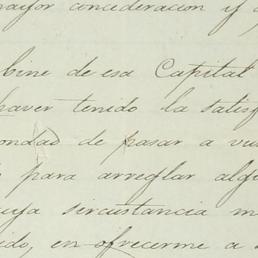 mayor concederacion y
bine de esa Capital
haver tenido la satisf
ondad de pasar a vu
para arreglar alg
uya sircustancia m
ido, en ofrecerme a